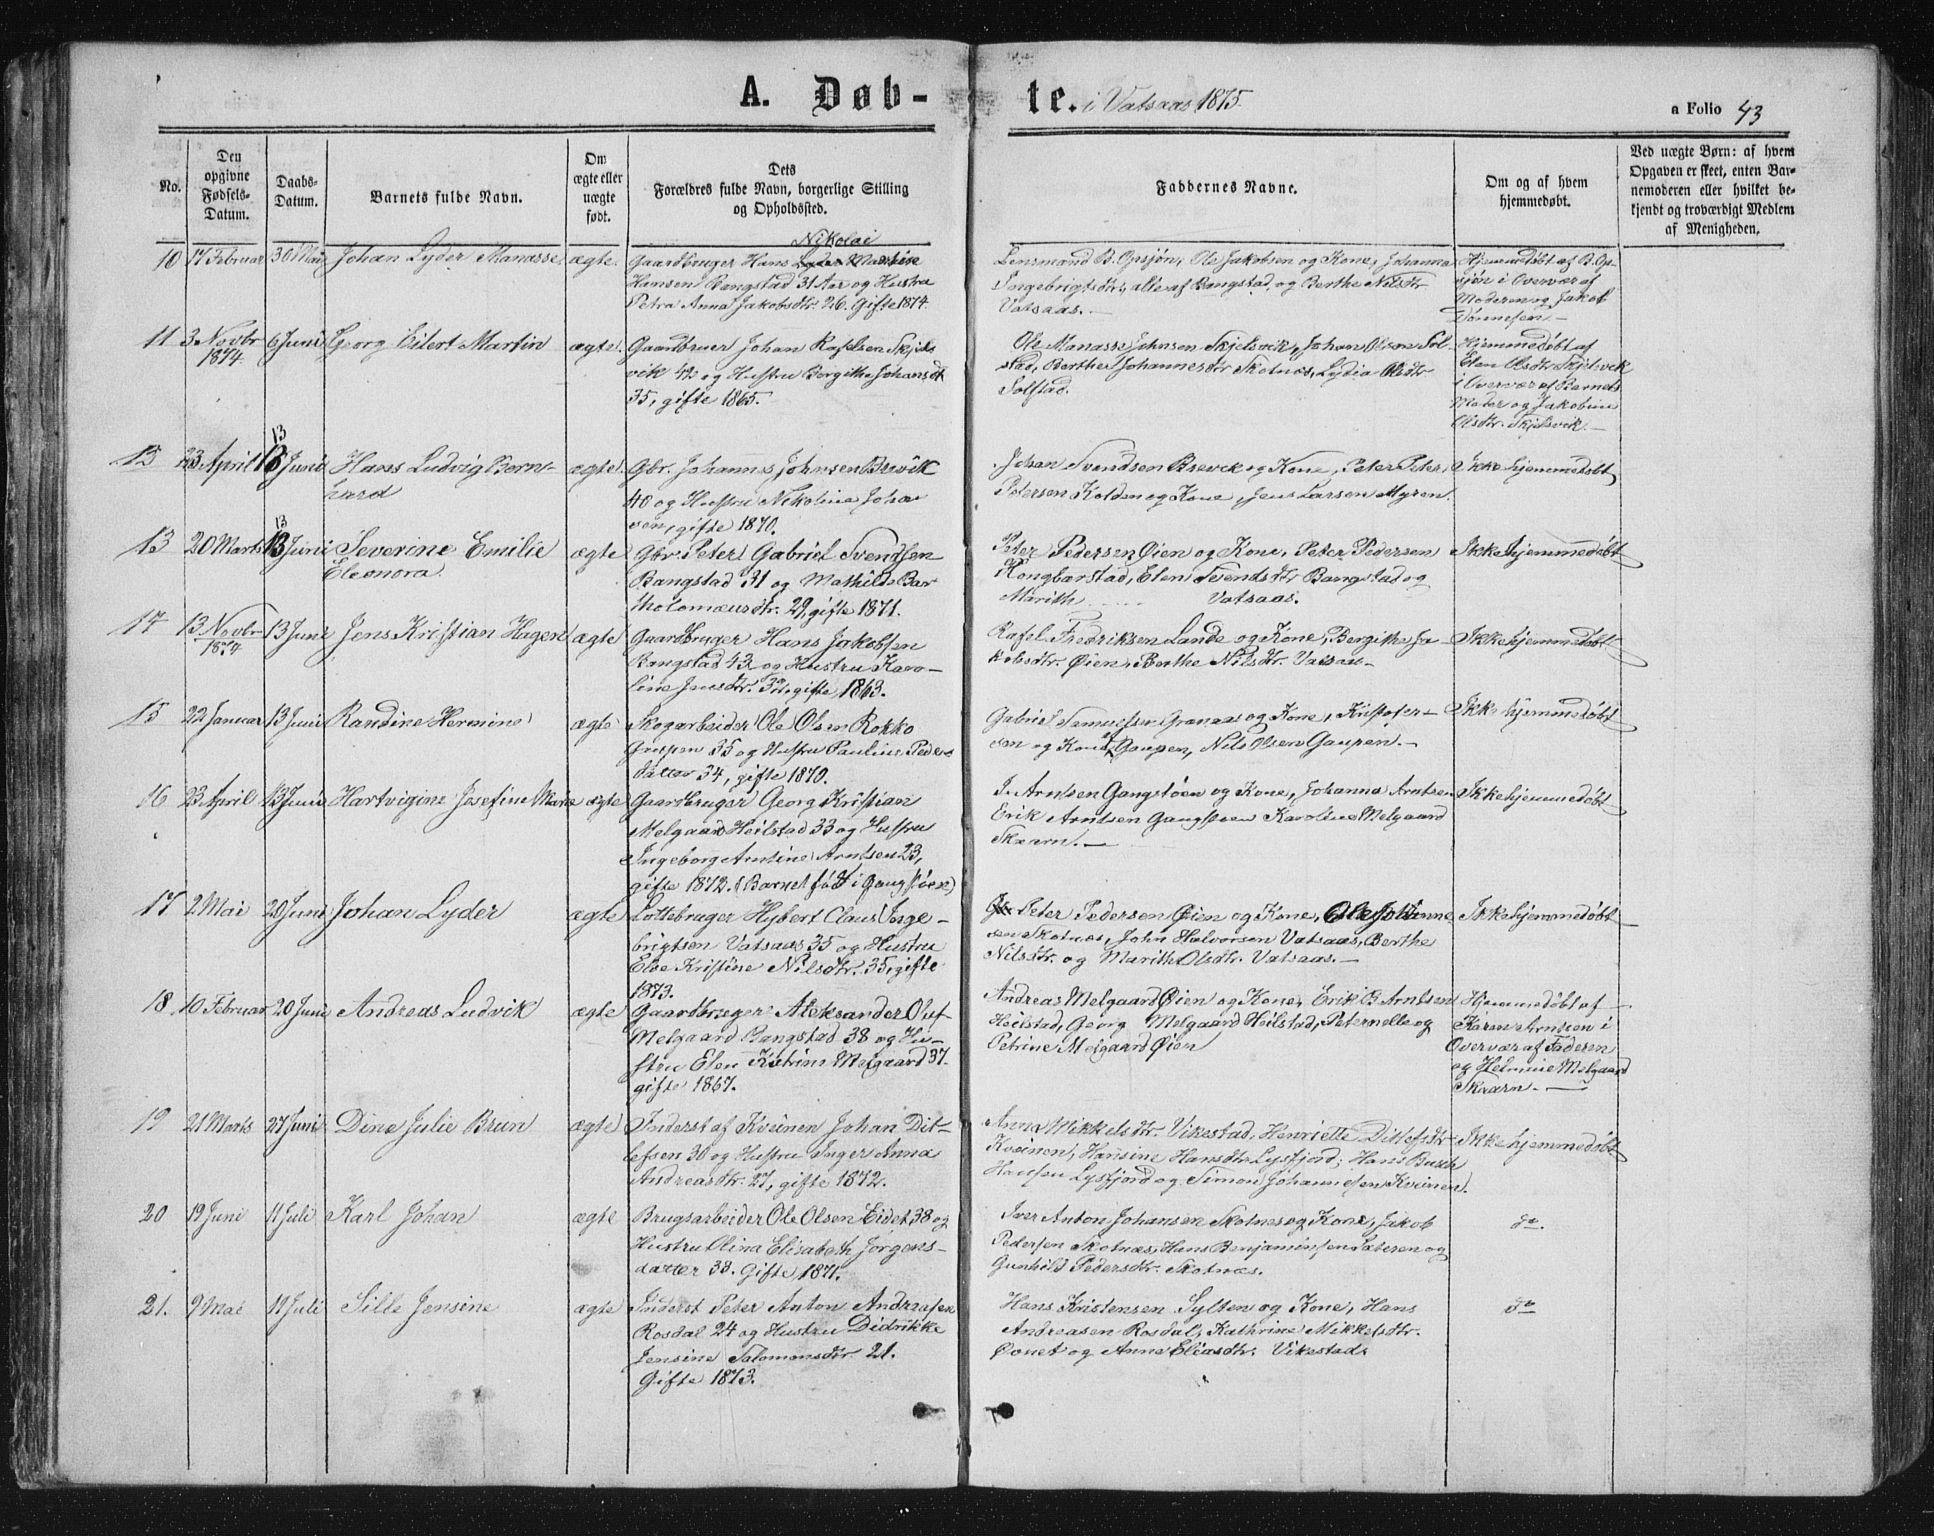 A. Døb-
te. i Vatsaas 1875.
a Folio 43
No.
Den
opgivne
Fødsels-
Datum.
Daabs-
Datum.
Barnets fulde Navn.
Om
ægte eller
uægte
født.
Dets
Forældres fulde Navn, borgerlige Stilling
og Opholdssted.
Faddernes Navne.
Om og af hvem
hjemmedøbt.
Ved uægte Børn: af hvem
Opgaven er skeet, enten Bar-
nemoderen eller hvilket be-
kjendt og troværdigt Medlem
af Menigheden.
10 17 Februar 30 Mai Johan Lyder Manasse ægte.
Nikolai
Gaardbruger Hans Lyder Martin
Hansen Bangstad 31 Aar og Hustru
Petra Anna Jakobsdtr. 26. Gifte 1874.
Lensmand B. Opsjøn, Ole Jakobsen og Kone, Johanna
Ingebrigtsdtr., alle af Bangstad, og Berthe Nilsdtr.
Vatsaas.
Hjemmedøbt af B. Op-
sjøn i Overvær af
Moderen og Jakob
Dønnesen
11 3 Novbr 1874. 6 Juni Georg Eilert Martin ægte.
Gaardbruer Johan Rafelsen Skjels
vik 42 og Hustru Bergithe Johansdt
35, gifte 1865.
Ole Manasse Johnsen Skjelsvik, Johan Olsen Sol-
stad, Berthe Johannesdtr Skotnæs, Lydia Olsdtr
Solstad.
Hjemmedøbt af
Elen Olsdtr. Skjelsvik
i Overvær af Barnets
Moder og Jakobine
Olsdtr. Skjelsvik
12 23 April 13 Juni Hans Ludvig Bern-
hard
ægte.
Gbr. Johannes Johnsen Brevik
40 og Hustru Nikoline Johan
sen, gifte 1870.
Johan Svendsen Brevik og Kone, Peter Peter,
Petersen Kolden og Kone, Jens Larsen Myren.
Ikke hjemmedøbt
13 20 Marts 13 Juni Severine Emilie
Eleonora.
ægte
Gbr. Peter Gabriel Svendsen
Bangstad 31 og Mathilde Bar-
tholomæusdtr. 29, gifte 1871.
Peter Pedersen Øien og Kone, Peter Pedersen
Kongbarstad, Elen Svendsdtr Bangstad og
Marith Vatsaas.
Ikke hjemmedøbt
14 13 Novbr 1874 13 Juni Jens Kristian Hagen ægte
Gaardbruger Hans Jakobsen
Bangstad 43 og Hustru Karo-
line Jensdtr. 32, gifte 1863.
Rafel Fredriksen Lande og Kone, Bergithe Ja-
kobsdtr. Øien, Berthe Nilsdtr. Vatsaas
Ikke hjemmedøbt
15 22 Januar 13 Juni Randine Hermine ægte
Skogarbeider Ole Olsen Rokko
Gaupen 35 og Hustru Pauline Peders
datter 34, gifte 1870.
Gabriel Samuelsen Granaas og Kone, Kristofer-
sen og Kone, Gaupen, Nils Olsen Gaupen.
Ikke hjemmedøbt
16 23 April 13 Juni Hartvigine Josefine Marie ægte
Gaardbruger Georg Kristian
Melgaard Heilstad 33 og Hustru
Ingeborg Arntine Arntsen 23,
gifte 1872. (Barnet født i Gangstøen)
Arntsen Gangstøen og Kone, Johanna Arntsen
Erik Arntsen Gangstøen Karoline Melgaard
Skaarn.
Ikke hjemmedøbt
17 2 Mai 20 Juni Johan Lyder ægte
Lottebruger Hybert Claus Inge-
brigtsen Vatsaas 35 og Hustru
Else Kristine Nilsdtr. 35, gifte
1873.
Peter Pedersen Øien og Kone, Ole Johanne
sen Skotnæs, John Halvorsen Vatsaas, Berthe
Nilsdtr. og Marith Olsdtr. Vatsaas.
Ikke hjemmedøbt
18. 10 Februar 20 Juni Andreas Ludvik ægte
Gaardbruger Aleksander Oluf
Melgaard Bangstad 38 og Hu-
stru Elen Katrine Melgaard 37.
gifte 1867.
Andreas Melgaard Øien og Kone, Erik B. Arntsen
Heilstad, Georg Melgaard Heilstad, Peternelle og
Petrine Melgaard Øien
Hjemmedøbt af
Karen Arntsen i
Overvær af Faderen
og Helmine Melgaard
Skaarn.
19 21 Marts 27 Juni Dine Julie Brun ægte
Inderst af Kveinen Johan Dit-
lefsen 30 og Hustru Inger Anna
Andreasdtr. 27, gifte 1872.
Anna Mikkelsdtr. Vikestad, Henriette Ditlefsdtr
Kveinen, Hansine Hansdtr Lysfjord, Hans Buch
Hansen Lysfjord og Simon Johannesen Kveinen.
Ikke hjemmedøbt
20 19 Juni 11 Juli Karl Johan ægte
Brugsarbeider Ole Olsen Eidet 38 og
Hustru Olina Elisabeth Jørgens-
datter 38. Gifte, 1871.
Iver Anton Johansen Skotnes og Kone, Jakob
Pedersen Skotnæs, Hans Benjaminsen Sæteren og
Gunhild Pedersdtr. Skotnæs.
do.
21. 9 Mai 19 Juli Sille Jensine ægte
Inderst Peter Anton Andreasen
Rosdal 24 og Hustru Didrikke
Jensine Salomonsdtr 21.
Gifte 1873.
Hans Kristensen Sylten og Kone, Hans
Andreasen Rosdal, Kathrine Mikkelsdtr.
Øouet og Anne Eliasdtr. Vikestad.
do